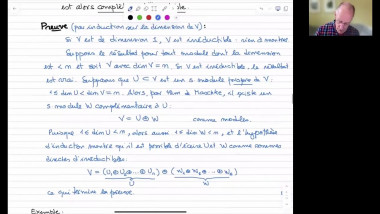 est alors complè
Preuve (par induction sur la dimension de V):
Si V est de dimension 1, V est irréductible: rien à montrer
Supposons le résultat pour tout module dont la dimension
est < m et soit V avec dim V = m. Si V est irréductible, le résultat
est vrai. Supposons que U ⊂ V est un s module propre de V:
1 ≤ dim U < dim V = m. Alors, par thm de Maschke, il existe un
s module W complémentaire à U:
V = U ⊕ W comme modules.
Puisque 1 ≤ dim U < m, alors aussi 1 ≤ dim W < m, et l'hypothèse
d'induction montre qu'il est possible d'écrire U et W comme sommes
directes d'irréductibles:
V = (U₁ ⊕ U₂ ⊕ ... ⊕ Uₙ) ⊕ (W₁ ⊕ W₂ ⊕ ... ⊕ )
U W
ce qui termine la preuve.
Exemple